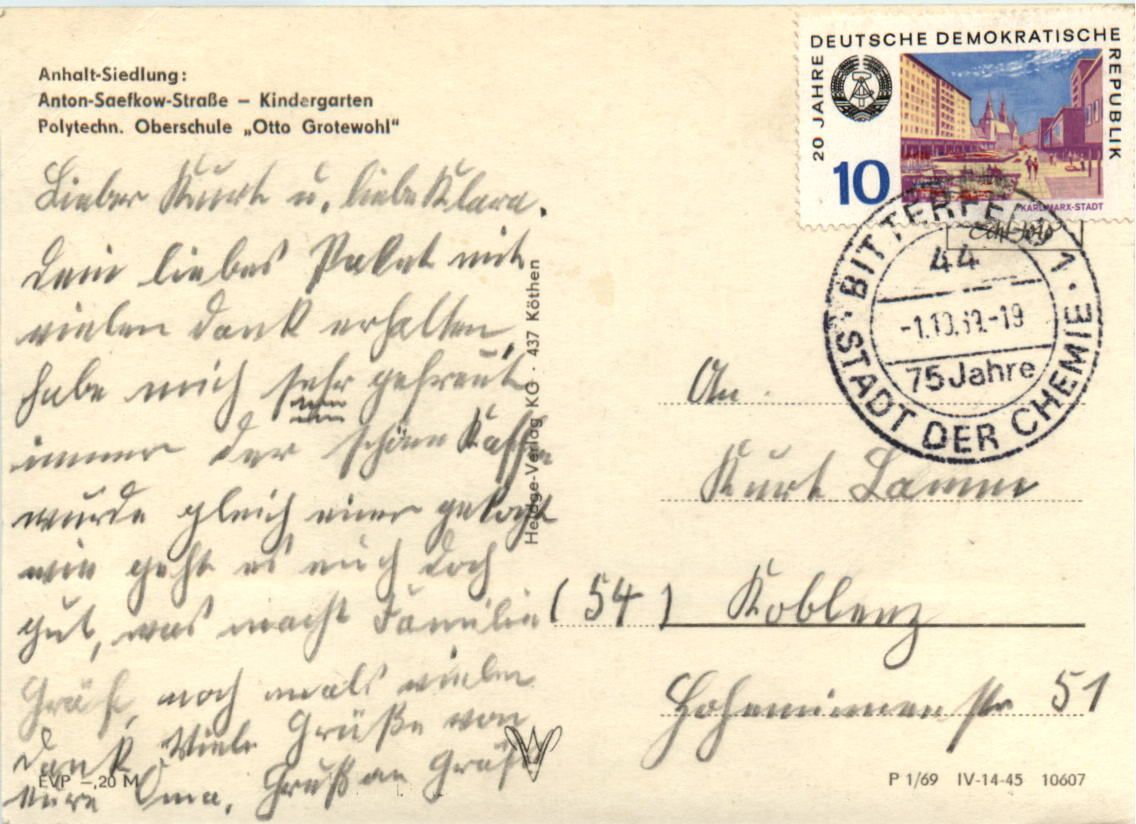 Anhalt-Siedlung:
Anton-Saefkow-Straße – Kindergarten
Polytechn. Oberschule „Otto Grotewohl"
Lieber Kurt u. liebe Klara.
Dein liebes Paket mit
vielen Dank erhalten,
habe mich sehr gefreut
immer der schöne Kaffee
wurde gleich einer gekocht
wie geht es euch doch
gut, was macht Familie
Gräf, noch mals vielen
Dank Viele Grüße von
eure Oma, Gruß an Gräf
EVP –,20 M
Heldge-Verlag KG · 437 Köthen
20 JAHRE DEUTSCHE DEMOKRATISCHE REPUBLIK
10
KARL-MARX-STADT
Echt Foto
BITTERFELD 1
44
-1.10.69.-19
75 Jahre
STADT DER CHEMIE
An
Kurt Lamm
(54) Koblenz
str 51
P 1/69 IV-14-45 10607